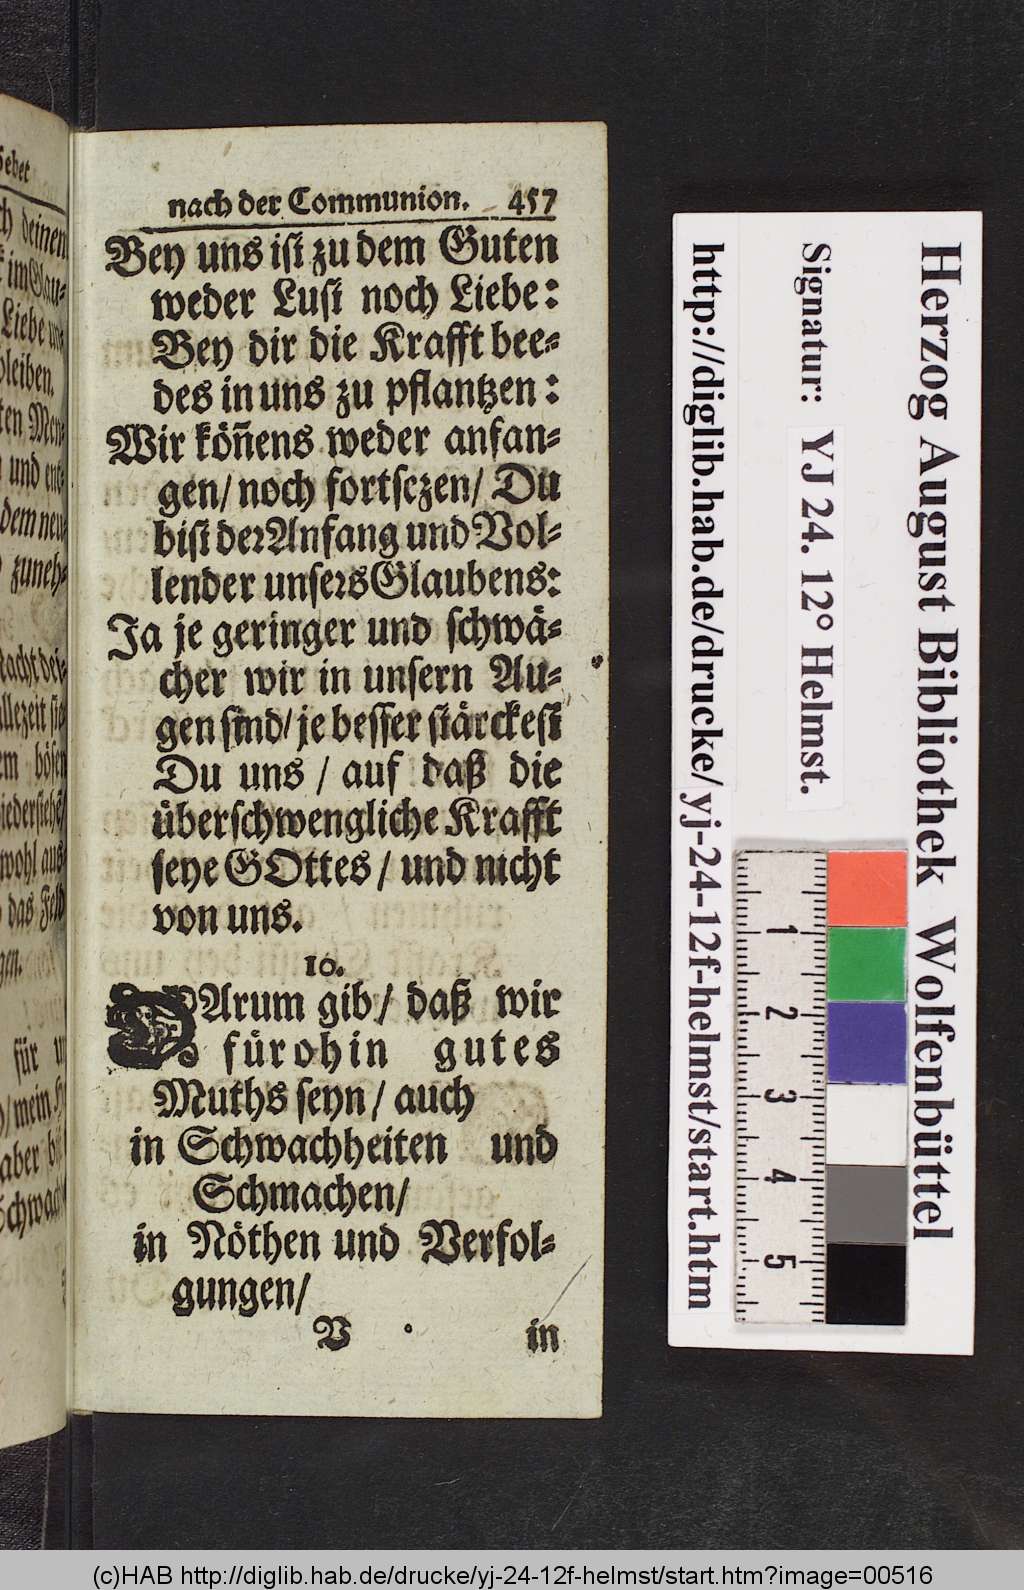 nach der Communion. 457
Bey uns ist zu dem Guten
weder Lust noch Liebe:
Bey dir die Krafft bee-
des in uns zu pflantzen:
Wir köñens weder anfan-
gen/ noch fortsezen/ Du
bist der Anfang und Vol-
lender unsers Glaubens:
Ja je geringer und schwä-
cher wir in unsern Au-
gen sind/ je besser stärckest
Du uns / auf daß die
überschwengliche Krafft
seye GOttes / und nicht
von uns.
10.
DArum gib/ daß wir
fürohin gutes
Muths seyn / auch
in Schwachheiten und
Schmachen/
in Nöthen und Verfol-
gungen/
V
in
Gebet
deinen
im Glau-
Liebe uns
bleiben.
und ent-
dem neu-
zuneh-
allezeit
bösen
wohl aus
das Feld
für
mein
aber
Schwach
Herzog August Bibliothek Wolfenbüttel
Signatur: YJ 24. 12° Helmst.
http://diglib.hab.de/drucke/yj-24-12f-helmst/start.htm
1
2
3
4
5
(c)HAB http://diglib.hab.de/drucke/yj-24-12f-helmst/start.htm?image=00516